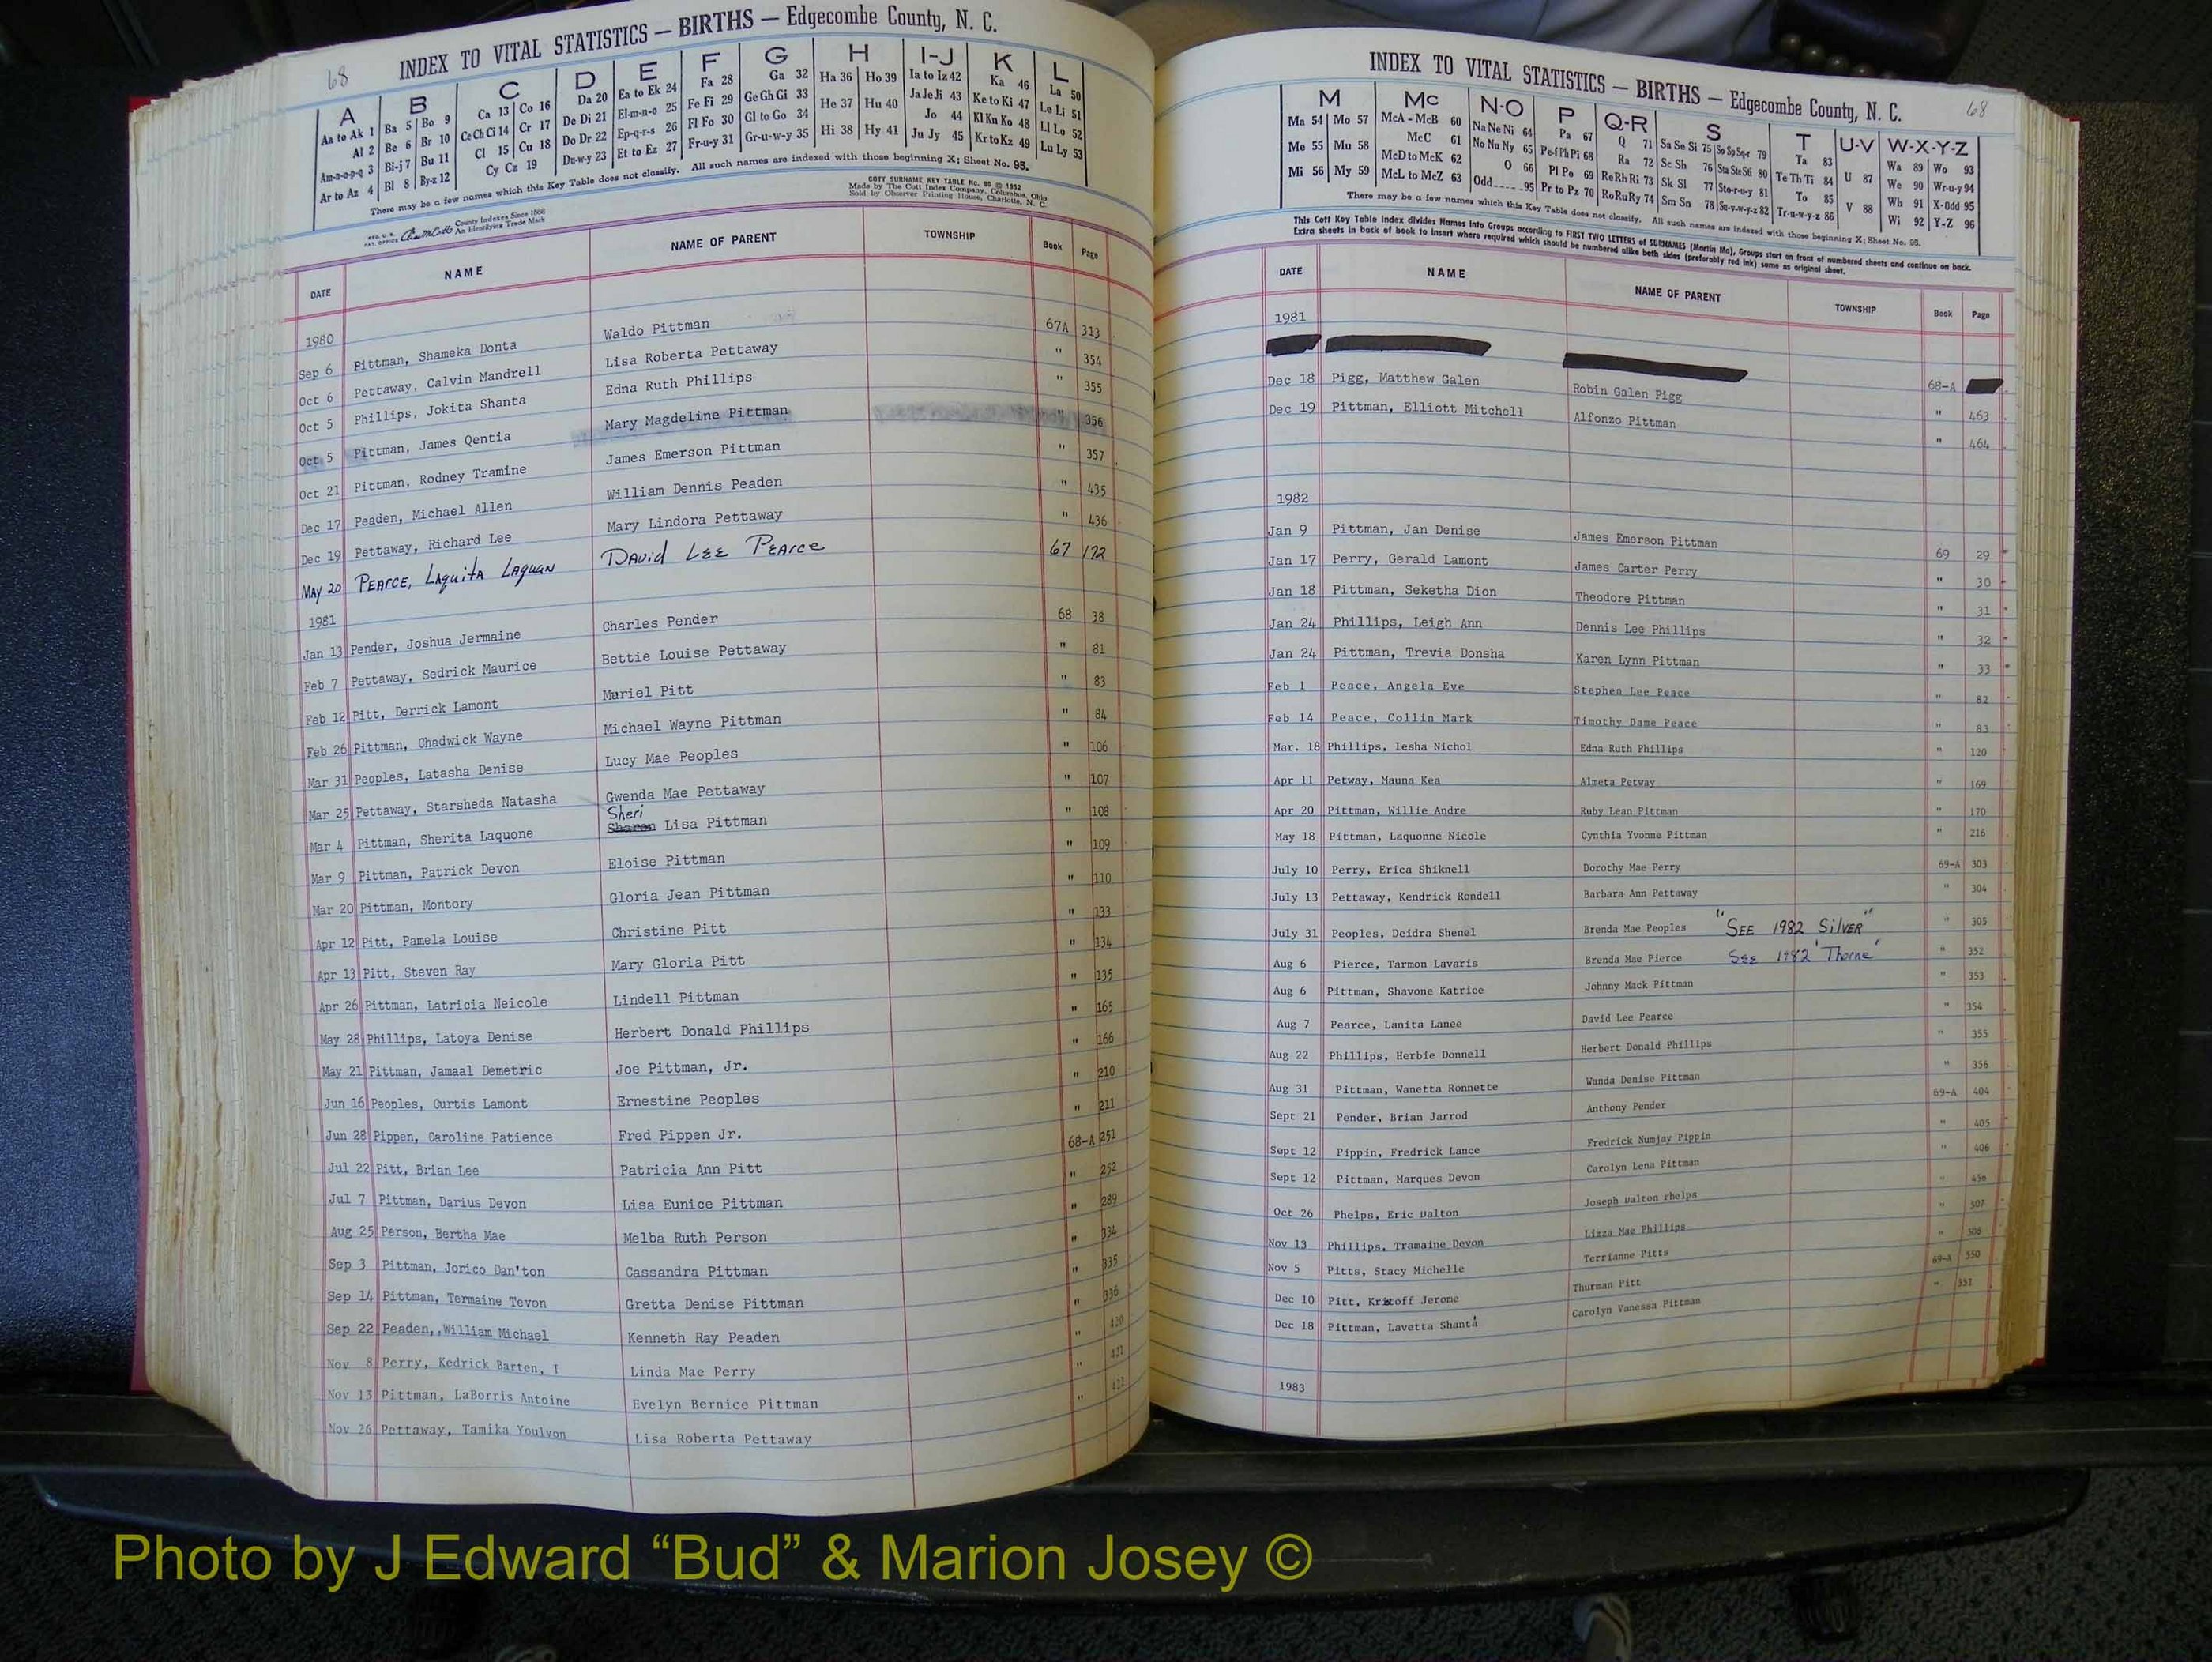 68
INDEX TO VITAL STATISTICS — BIRTHS — Edgecombe County, N. C.
A B C D E F G H I-J K L
Aa to Ak 1 Ba 5 Bo 9 Ca 13 Co 16 Da 20 Ea to Ek 24 Fa 28 Ga 32 Ha 36 Ho 39 Ia to Iz 42 Ka 46 La 50
Al 2 Be 6 Br 10 Ce Ch Ci 14 Cr 17 De Di 21 El-m-n-o 25 Fe Fi 29 Ge Gh Gi 33 He 37 Hu 40 Ja Je Ji 43 Ke to Ki 47 Le Li 51
Am-n-o-p-q 3 Bi-j 7 Bu 11 Cl 15 Cu 18 Do Dr 22 Ep-q-r-s 26 Fl Fo 30 Gl to Go 34 Hi 38 Hy 41 Jo 44 Kl Kn Ko 48 Ll Lo 52
Ar to Az 4 Bl 8 By-z 12 Cy Cz 19 Du-w-y 23 Et to Ez 27 Fr-u-y 31 Gr-u-w-y 35 Ju Jy 45 Kr to Kz 49 Lu Ly 53
There may be a few names which this Key Table does not classify. All such names are indexed with those beginning X; Sheet No. 95.
COTT SURNAME KEY TABLE No. 96 © 1952
Made by The Cott Index Company, Columbus, Ohio
Sold by Observer Printing House, Charlotte, N. C.
County Indexes Since 1888
An Identifying Trade Mark
DATE NAME NAME OF PARENT TOWNSHIP Book Page
1980
Sep 6 Pittman, Shameka Donta Waldo Pittman 67A 313
Oct 6 Pettaway, Calvin Mandrell Lisa Roberta Pettaway " 354
Oct 5 Phillips, Jokita Shanta Edna Ruth Phillips " 355
Oct 5 Pittman, James Qentia Mary Magdeline Pittman " 356
Oct 21 Pittman, Rodney Tramine James Emerson Pittman " 357
Dec 17 Peaden, Michael Allen William Dennis Peaden " 435
Dec 19 Pettaway, Richard Lee Mary Lindora Pettaway " 436
MAY 20 PEARCE, LAquitA LAquan DAvid LEE PEArce 67 172
1981
Jan 13 Pender, Joshua Jermaine Charles Pender 68 38
Feb 7 Pettaway, Sedrick Maurice Bettie Louise Pettaway " 81
Feb 12 Pitt, Derrick Lamont Muriel Pitt " 83
Feb 26 Pittman, Chadwick Wayne Michael Wayne Pittman " 84
Mar 31 Peoples, Latasha Denise Lucy Mae Peoples " 106
Mar 25 Pettaway, Starsheda Natasha Gwenda Mae Pettaway " 107
Sheri
Mar 4 Pittman, Sherita Laquone Sharon Lisa Pittman " 108
Mar 9 Pittman, Patrick Devon Eloise Pittman " 109
Mar 20 Pittman, Montory Gloria Jean Pittman " 110
Apr 12 Pitt, Pamela Louise Christine Pitt " 133
Apr 13 Pitt, Steven Ray Mary Gloria Pitt " 134
Apr 26 Pittman, Latricia Neicole Lindell Pittman " 135
May 28 Phillips, Latoya Denise Herbert Donald Phillips " 165
May 21 Pittman, Jamaal Demetric Joe Pittman, Jr. " 166
Jun 16 Peoples, Curtis Lamont Ernestine Peoples " 210
Jun 28 Pippen, Caroline Patience Fred Pippen Jr. " 211
Jul 22 Pitt, Brian Lee Patricia Ann Pitt 68-A 251
Jul 7 Pittman, Darius Devon Lisa Eunice Pittman " 252
Aug 25 Person, Bertha Mae Melba Ruth Person " 289
Sep 3 Pittman, Jorico Dan'ton Cassandra Pittman " 334
Sep 14 Pittman, Termaine Tevon Gretta Denise Pittman " 335
Sep 22 Peaden,,William Michael Kenneth Ray Peaden " 336
Nov 8 Perry, Kedrick Barten, I Linda Mae Perry " 420
Nov 13 Pittman, LaBorris Antoine Evelyn Bernice Pittman " 421
Nov 26 Pettaway, Tamika Youlvon Lisa Roberta Pettaway " 422
INDEX TO VITAL STATISTICS — BIRTHS — Edgecombe County, N. C. 68
M Mc N-O P Q-R S T U-V W-X-Y-Z
Ma 54 Mo 57 McA - McB 60 Na Ne Ni 64 Pa 67 Q 71 Sa Se Si 75 So Sp Sq-r 79 Ta 83 U 87 Wa 89 Wo 93
Me 55 Mu 58 McC 61 No Nu Ny 65 Pe-f Ph Pi 68 Ra 72 Sc Sh 76 Sta Ste Sti 80 Te Th Ti 84 V 88 We 90 Wr-u-y 94
Mi 56 My 59 McD to McK 62 O 66 Pl Po 69 Re Rh Ri 73 Sk Sl 77 Sto-r-u-y 81 To 85 Wh 91 X-Odd 95
McL to McZ 63 Odd 95 Pr to Pz 70 Ro Ru Ry 74 Sm Sn 78 Su-v-w-y-z 82 Tr-u-w-y-z 86 Wi 92 Y-Z 96
There may be a few names which this Key Table does not classify. All such names are indexed with those beginning X; Sheet No. 95.
This Cott Key Table Index divides Names into Groups according to FIRST TWO LETTERS of SURNAMES (Martin Ma), Groups start on front of numbered sheets and continue on back.
Extra sheets in back of book to insert where required which should be numbered alike both sides (preferably red ink) same as original sheet.
DATE NAME NAME OF PARENT TOWNSHIP Book Page
1981
68-A
Dec 18 Pigg, Matthew Galen Robin Galen Pigg " 463
Dec 19 Pittman, Elliott Mitchell Alfonzo Pittman " 464
1982
Jan 9 Pittman, Jan Denise James Emerson Pittman 69 29
Jan 17 Perry, Gerald Lamont James Carter Perry " 30
Jan 18 Pittman, Seketha Dion Theodore Pittman " 31
Jan 24 Phillips, Leigh Ann Dennis Lee Phillips " 32
Jan 24 Pittman, Trevia Donsha Karen Lynn Pittman " 33
Feb 1 Peace, Angela Eve Stephen Lee Peace " 82
Feb 14 Peace, Collin Mark Timothy Dane Peace " 83
Mar. 18 Phillips, Iesha Nichol Edna Ruth Phillips " 120
Apr 11 Petway, Mauna Kea Almeta Petway " 169
Apr 20 Pittman, Willie Andre Ruby Lean Pittman " 170
May 18 Pittman, Laquonne Nicole Cynthia Yvonne Pittman " 216
July 10 Perry, Erica Shiknell Dorothy Mae Perry 69-A 303
July 13 Pettaway, Kendrick Rondell Barbara Ann Pettaway " 304
July 31 Peoples, Deidra Shenel Brenda Mae Peoples "SEE 1982 SilVER" " 305
Aug 6 Pierce, Tarmon Lavaris Brenda Mae Pierce SEE 1982 'Thorne' " 352
Aug 6 Pittman, Shavone Katrice Johnny Mack Pittman " 353
Aug 7 Pearce, Lanita Lanee David Lee Pearce " 354
Aug 22 Phillips, Herbie Donnell Herbert Donald Phillips " 355
Aug 31 Pittman, Wanetta Ronnette Wanda Denise Pittman " 356
Sept 21 Pender, Brian Jarrod Anthony Pender 69-A 404
Sept 12 Pippin, Fredrick Lance Fredrick Numjay Pippin " 405
Sept 12 Pittman, Marques Devon Carolyn Lena Pittman " 406
Oct 26 Phelps, Eric Dalton Joseph Dalton Phelps " 456
Nov 13 Phillips, Tramaine Devon Lizza Mae Phillips " 507
Nov 5 Pitts, Stacy Michelle Terrianne Pitts " 508
Dec 10 Pitt, Kristoff Jerome Thurman Pitt 69-A 550
Dec 18 Pittman, Lavetta Shanta' Carolyn Vanessa Pittman " 551
1983
Photo by J Edward “Bud” & Marion Josey ©